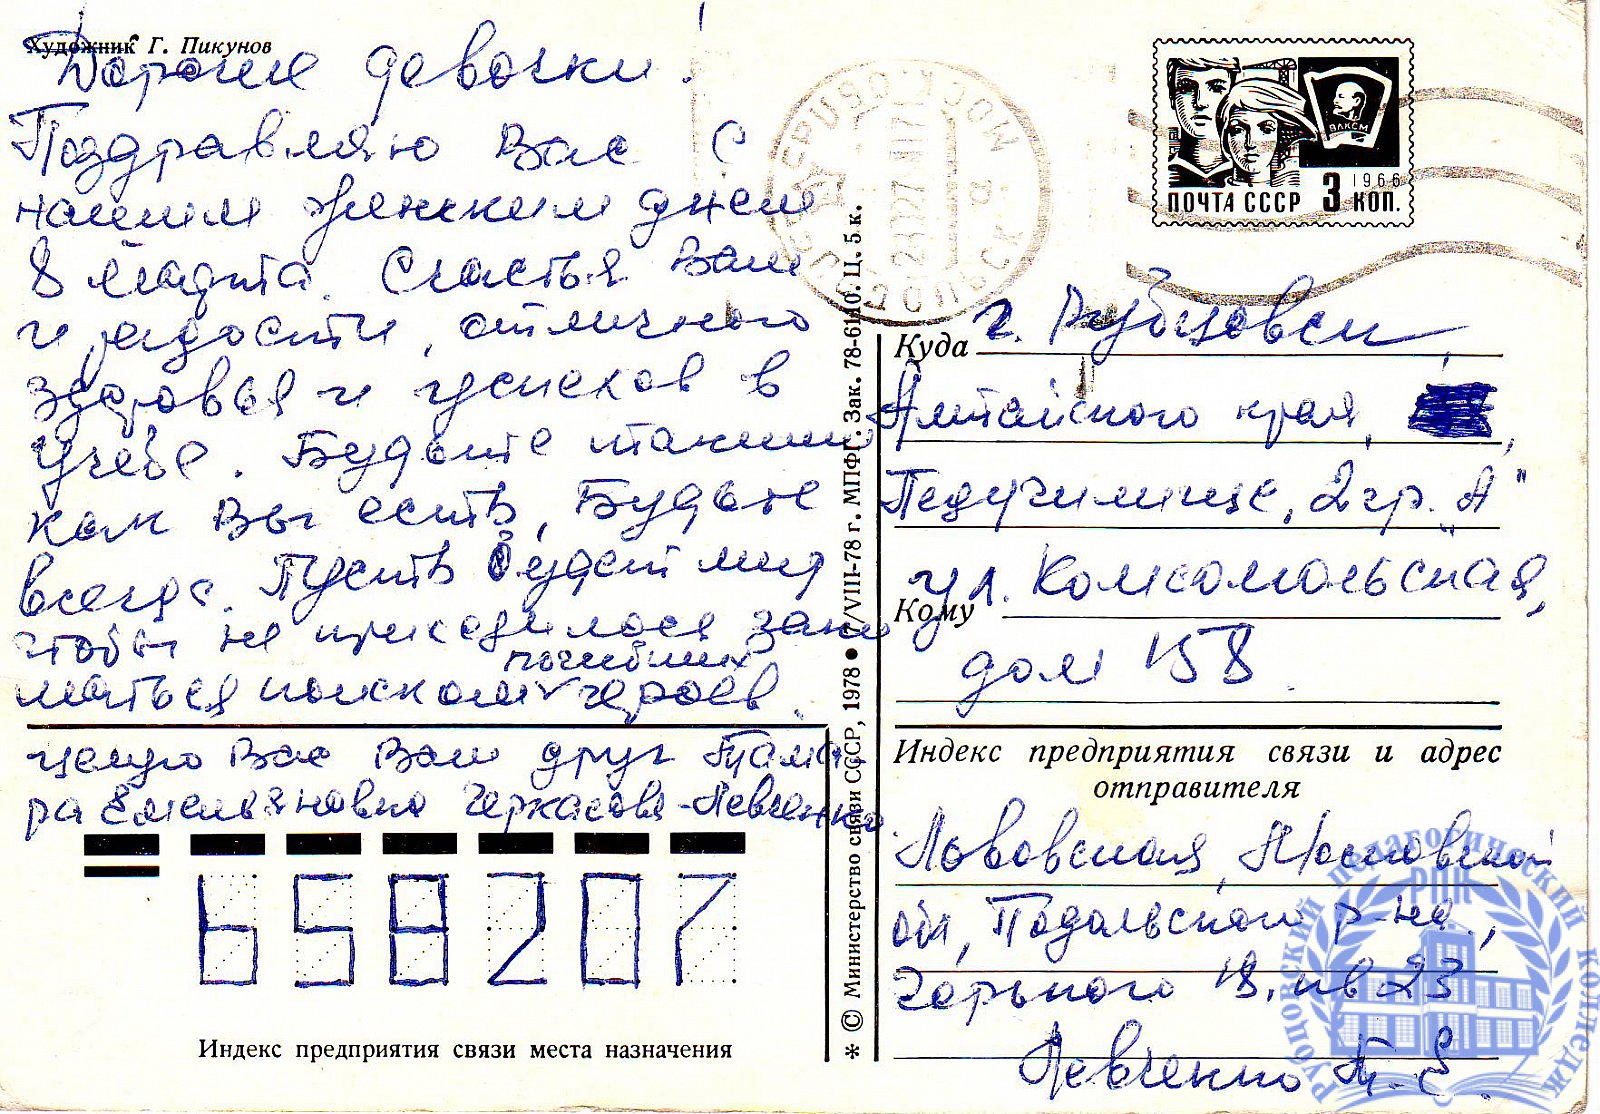 Художник Г. Пикунов
Дорогие девочки!
Поздравляю Вас с
нашим женским днем
8 марта. Счастья Вам
и радости, отличного
здоровья и успехов в
учебе. Будьте такими
как Вы есть, Будьте
всегда. Пусть будет мир
чтобы не приходилося зани
маться поиском погибших героев.
целую Вас Ваш друг Тама
ра Емельяновна Черкасова-Левченко
658207
Индекс предприятия связи места назначения
* © Министерство связи СССР, 1978 • 7/VIII-78 г. МПФГ. Зак. 78-6110. Ц. 5 к.
ВЛКСМ
1966
ПОЧТА СССР 3 КОП.
Куда г. Рубцовск,
Алтайского края,
Педучилище, 2 гр. "А"
Кому ул. Комсомольская,
дом 158.
Индекс предприятия связи и адрес
отправителя
Львовская, Московской
обл, Подольского р-на,
Горького 18, кв 23
Левченко Т. Е.
РПК
Рубцовский педагогический колледж